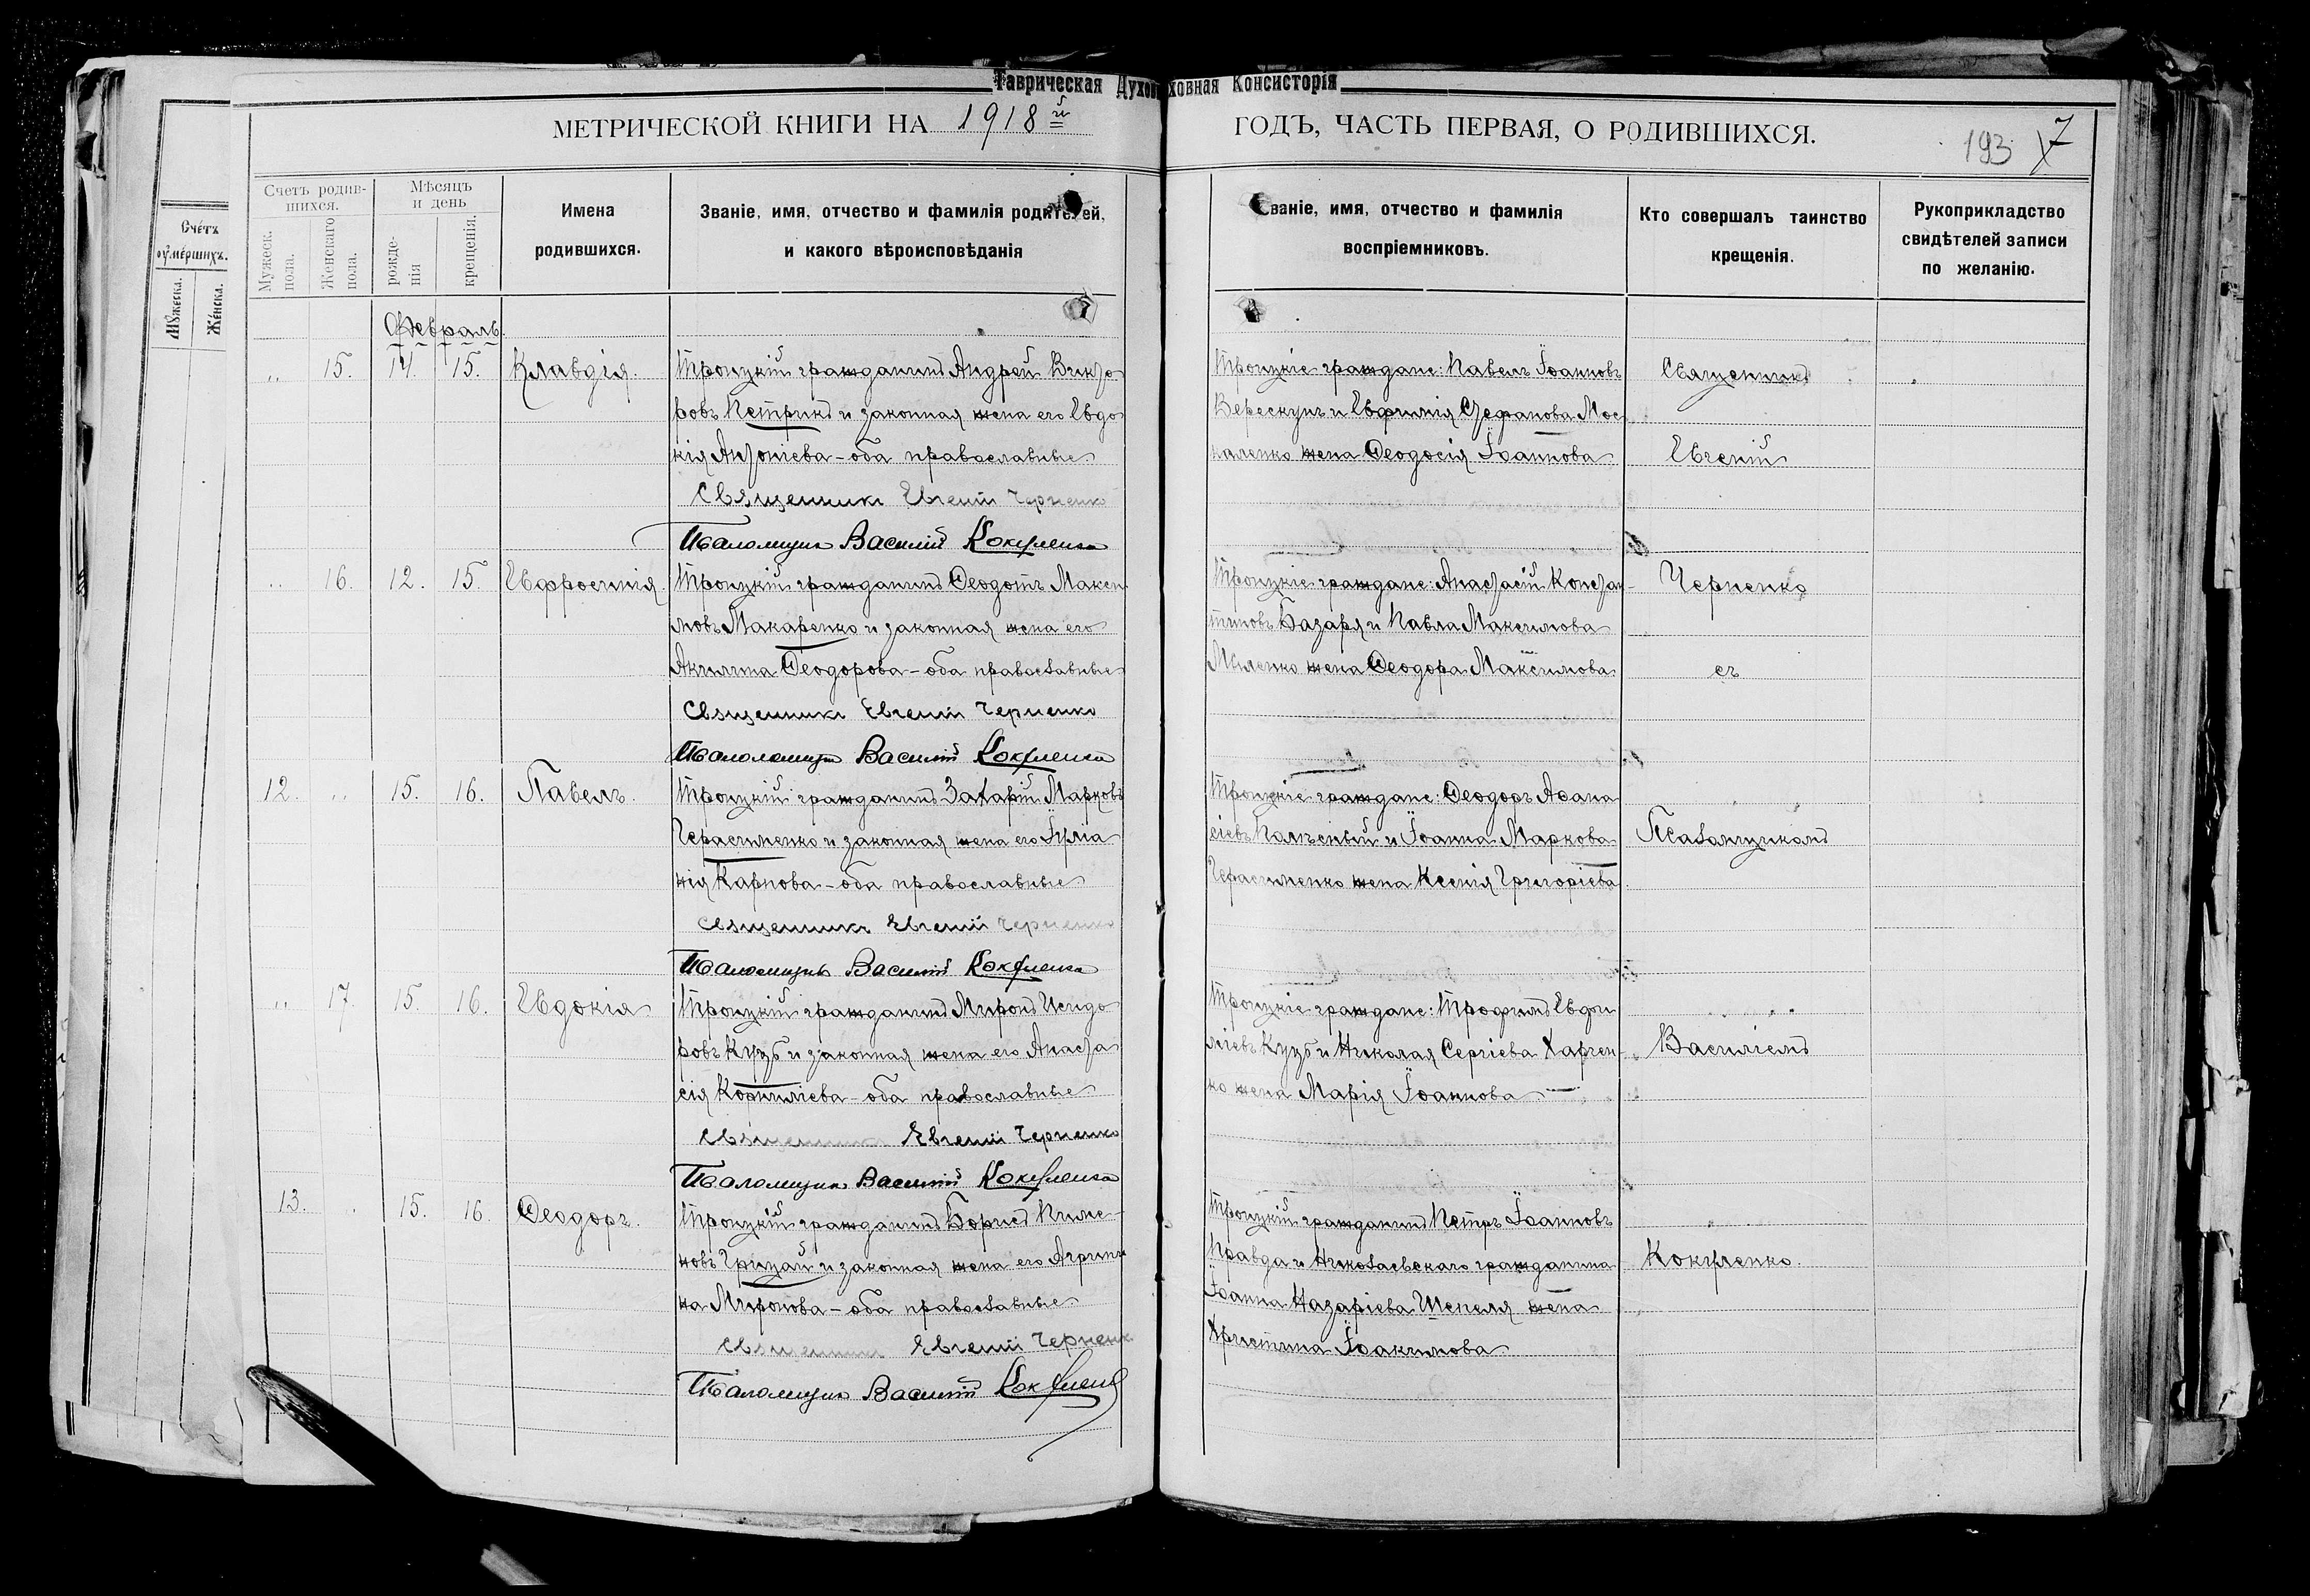 Таврическая Духовная Консисторія
МЕТРИЧЕСКОЙ КНИГИ НА 1918й ГОДЪ, ЧАСТЬ ПЕРВАЯ, О РОДИВШИХСЯ.
193 7
Счетъ умершихъ.
Мужеска.
Женска.
Счетъ родив-
шихся.
Мужеск. пола.
Женскаго пола.
Мѣсяцъ
и день
рожде-
нія
крещенія.
Имена
родившихся.
Званіе, имя, отчество и фамилія родителей,
и какого вѣроисповѣданія
Званіе, имя, отчество и фамилія
воспріемниковъ.
Кто совершалъ таинство
крещенія.
Рукоприкладство
свидѣтелей записи
по желанію.
Февраль.
„ 15. 14. 15. Клавдія.
Троицкій гражданинъ Андрей Викто-
ровъ Петрикъ и законная жена его Евдо
кія Антоніева – оба православные
Священникъ Евгеній Черненко
Псаломщикъ Василій Кокуленко
Троицкіе граждане: Павелъ Іоанновъ
Верескунъ и Евфимія Стефанова Мос
каленко жена Ѳеодосія Іоаннова
„ 16. 12. 15. Евфросинія.
Троицкій гражданинъ Ѳеодотъ Макси
мовъ Макаренко и законная жена его
Акилина Ѳеодорова – оба православные
Священникъ Евгеній Черненко
Псаломщикъ Василій Кокуленко
Троицкіе граждане: Анастасій Констан-
тиновъ Базаря и Павла Максимова
жена Ѳеодора Максимова
12. „ 15. 16. Павелъ.
Троицкій гражданинъ Захарій Марковъ
Герасименко и законная жена его Ірина
Карпова – оба православные
Священникъ Евгеній Черненко
Псаломщикъ Василій Кокуленко
Троицкіе граждане: Ѳеодоръ Аѳана
сіевъ и Іоанна Маркова
Герасименко жена Ксенія Григоріева
„ 17. 15. 16. Евдокія
Троицкій гражданинъ Миронъ Исидо
ровъ Кузъ и законная жена его Анаста
сія Корниліева – оба православные
Священникъ Евгеній Черненко
Псаломщикъ Василій Кокуленко
Троицкіе граждане: Трофимъ Евфи
міевъ Кузъ и Николая Сергіева Харчен-
ко жена Марія Іоаннова
13. 15. 16. Ѳеодоръ.
Троицкій гражданинъ Борисъ Пиме-
новъ Грицай и законная жена его Агрипи
на Миронова – оба православные
Священникъ Евгеній Черненко
Псаломщикъ Василій Кокуленко
Троицкій гражданинъ Петръ Іоанновъ
Правда и Николаевскаго гражданина
Іоанна Назаріева Шепеля жена
Христина Іоакимова
Священникъ
Евгеній
Черненко
съ
Псаломщикомъ
Василіемъ
Кокуленко.